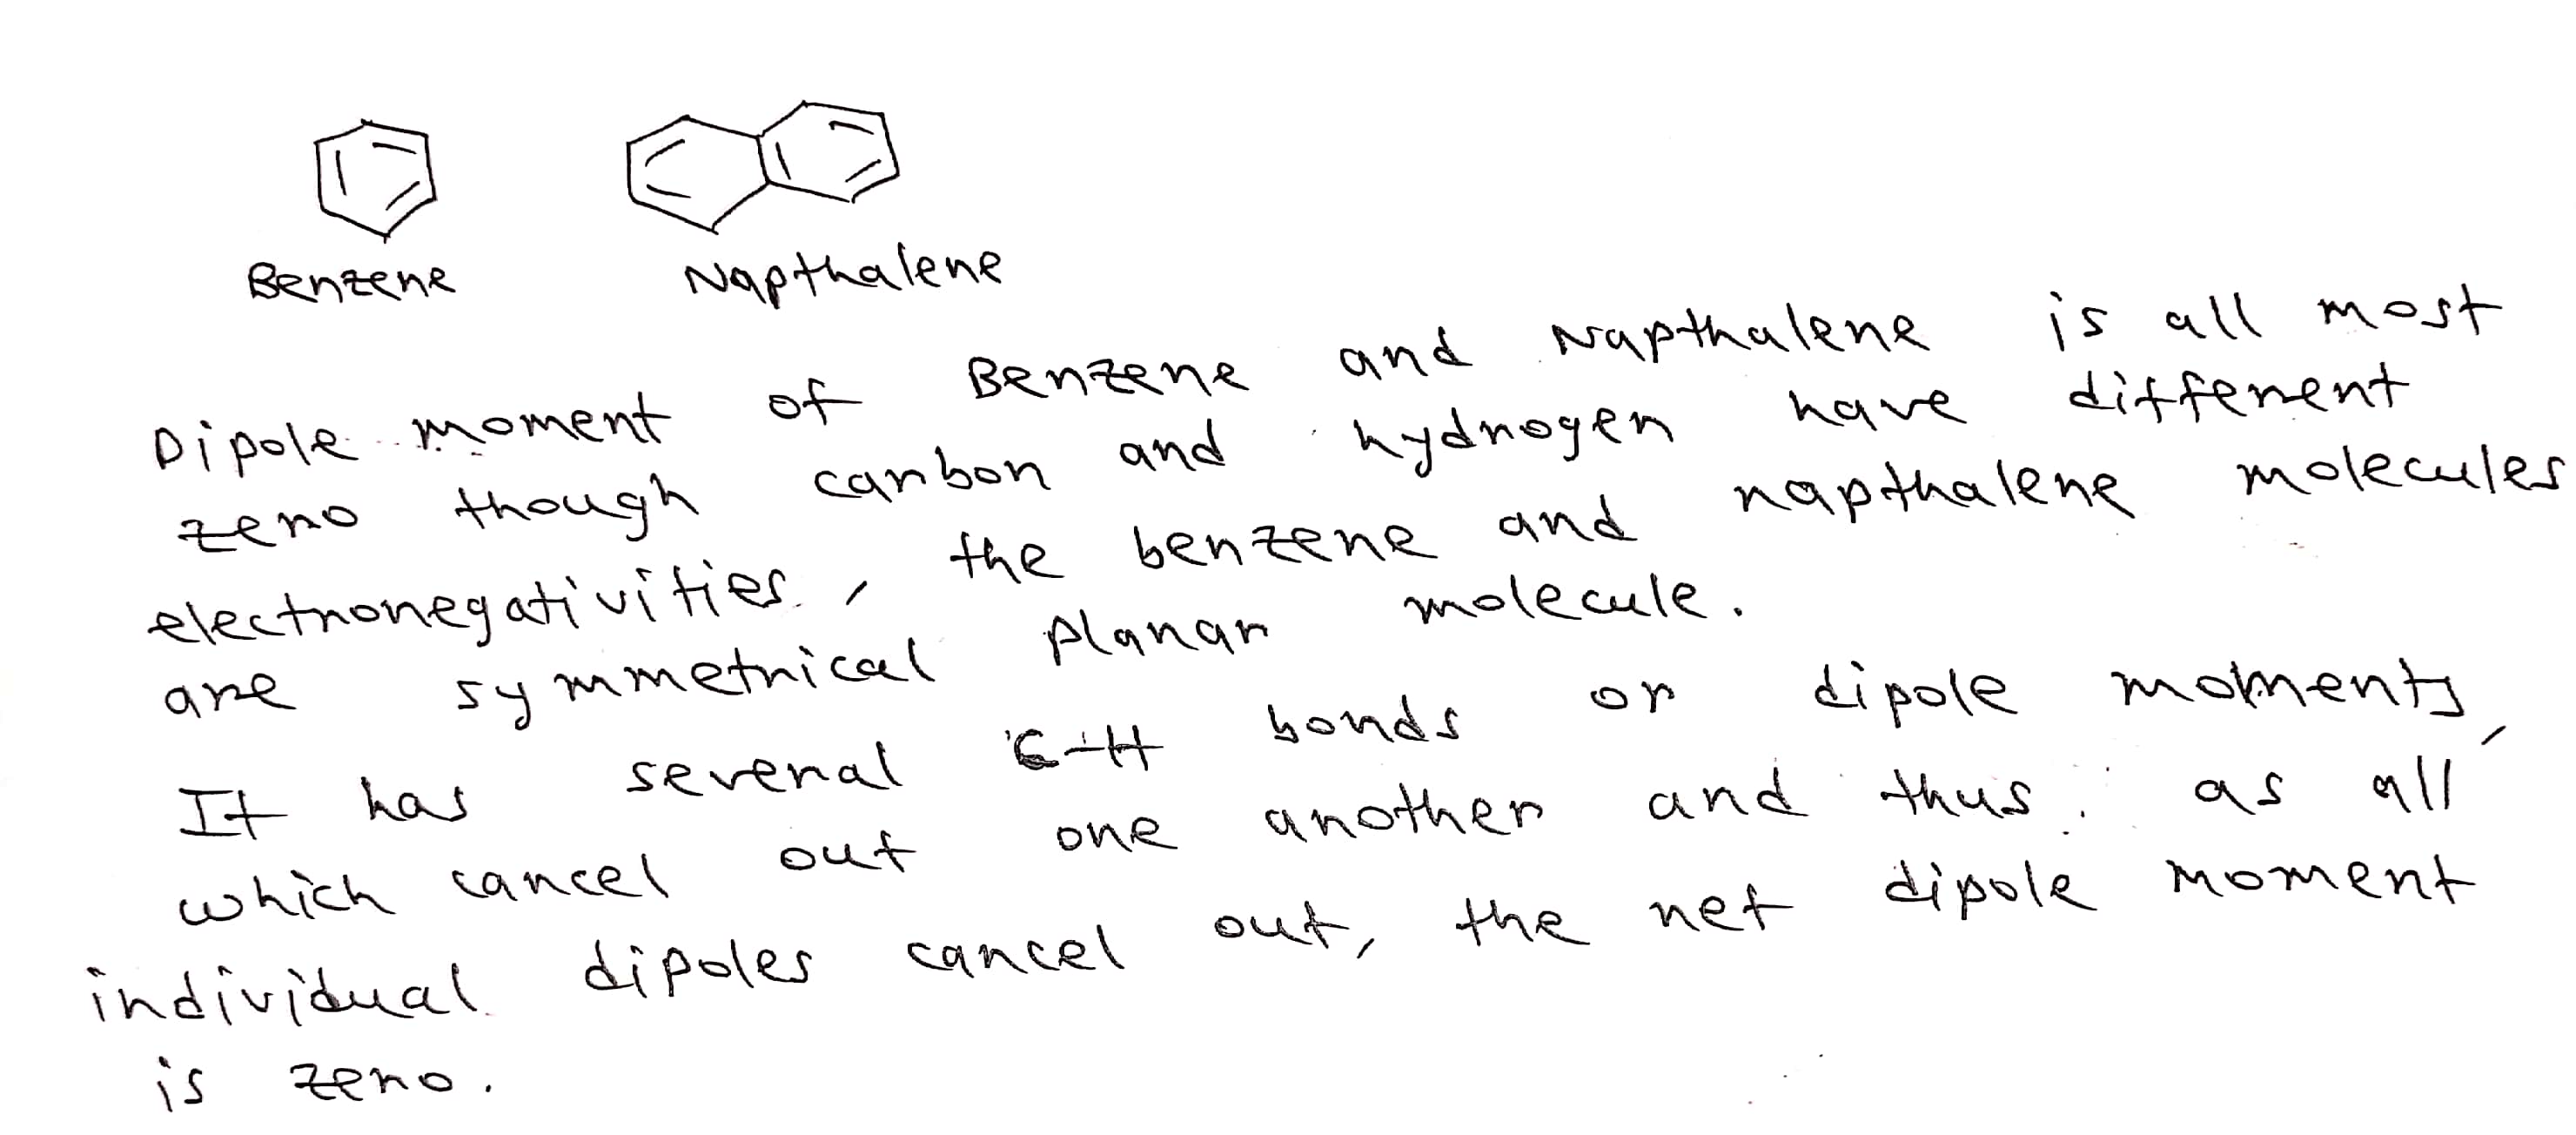 Benzene Napthalene
Dipole moment of Benzene and Napthalene is all most
zero though carbon and hydrogen have different
electronegativities, the benzene and napthalene molecules
are symmetrical planar molecule.
It has several C-H bonds or dipole moments,
which cancel out one another and thus as all
individual dipoles cancel out, the net dipole moment
is zero.